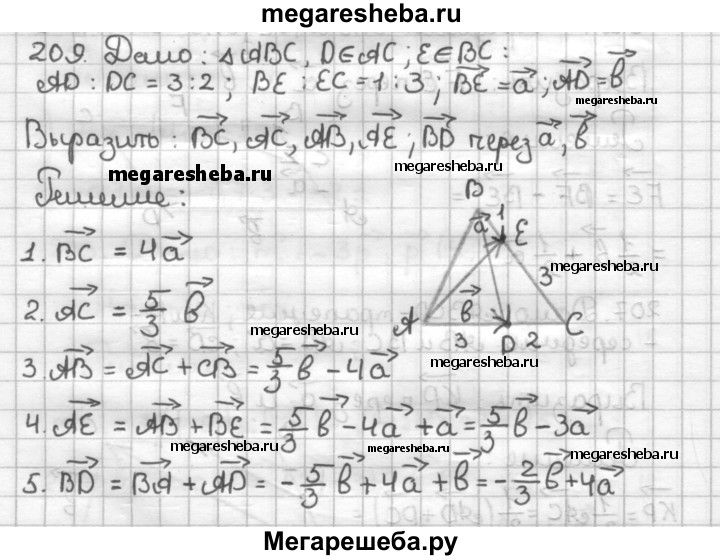 megaresheba.ru
209. Дано: △ABC, D∈AC; E∈BC:
AD : DC = 3:2; BE : EC = 1:3; \vec{BE} = \vec{a}; \vec{AD} = \vec{b}
megaresheba.ru
Выразить: \vec{BC}, \vec{AC}, \vec{AB}, \vec{AE}; \vec{BD} через \vec{a}, \vec{b}
megaresheba.ru
megaresheba.ru
Решение:
B
1
a E
3
megaresheba.ru
b
A C
3 D 2
megaresheba.ru
1. \vec{BC} = 4\vec{a}
2. \vec{AC} = 5/3 \vec{b}
megaresheba.ru
3. \vec{AB} = \vec{AC} + \vec{CB} = 5/3 \vec{b} - 4\vec{a}
4. \vec{AE} = \vec{AB} + \vec{BE} = 5/3 \vec{b} - 4\vec{a} + \vec{a} = 5/3 \vec{b} - 3\vec{a}
megaresheba.ru
megaresheba.ru
5. \vec{BD} = \vec{BA} + \vec{AD} = -5/3 \vec{b} + 4\vec{a} + \vec{b} = -2/3 \vec{b} + 4\vec{a}
Мегарешеба.ру